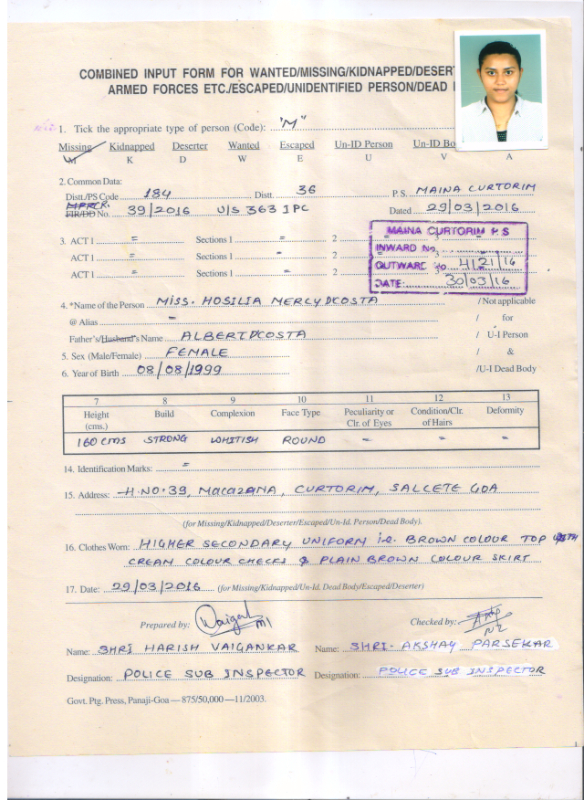 COMBINED INPUT FORM FOR WANTED/MISSING/KIDNAPPED/DESERT
ARMED FORCES ETC./ESCAPED/UNIDENTIFIED PERSON/DEAD
1. Tick the appropriate type of person (Code): "M"
Missing Kidnapped Deserter Wanted Escaped Un-ID Person Un-ID Bo
M K D W E U V A
2. Common Data:
Distt./PS Code 184 Distt. 36 P.S. MAINA CURTORIM
FIR/DD No. 39/2016 U/S 363 IPC Dated 29/03/2016
3. ACT 1 = Sections 1 = 2 3
ACT 1 = Sections 1 = 2 3
ACT 1 = Sections 1 = 2
MAINA CURTORIM P.S
INWARD No.
OUTWARD No 4121/16
DATE: 30/03/16
4. *Name of the Person MISS. HOSILIA MERCY DCOSTA / Not applicable
@ Alias – / for
Father's/Husband's Name ALBERT DCOSTA / U-I Person
5. Sex (Male/Female) FEMALE / &
6. Year of Birth 08/08/1999 /U-I Dead Body
7 8 9 10 11 12 13
Height (cms.) Build Complexion Face Type Peculiarity or Clr. of Eyes Condition/Clr. of Hairs Deformity
160 CMS STRONG WHITISH ROUND = = =
14. Identification Marks: =
15. Address: H.NO.39, MACAZANA, CURTORIM, SALLCETE GOA
(for Missing/Kidnapped/Deserter/Escaped/Un-Id. Person/Dead Body).
16. Clothes Worn: HIGHER SECONDARY UNIFORM i.e. BROWN COLOUR TOP WITH
CREAM COLOUR CHECKS & PLAIN BROWN COLOUR SKIRT
17. Date: 29/03/2016 (for Missing/Kidnapped/Un-Id. Dead Body/Escaped/Deserter)
Prepared by: Checked by:
Name: SHRI HARISH VAIGANKAR Name: SHRI. AKSHAY PARSEKAR
Designation: POLICE SUB INSPECTOR Designation: POLICE SUB INSPECTOR
Govt. Ptg. Press, Panaji-Goa — 875/50,000 —11/2003.